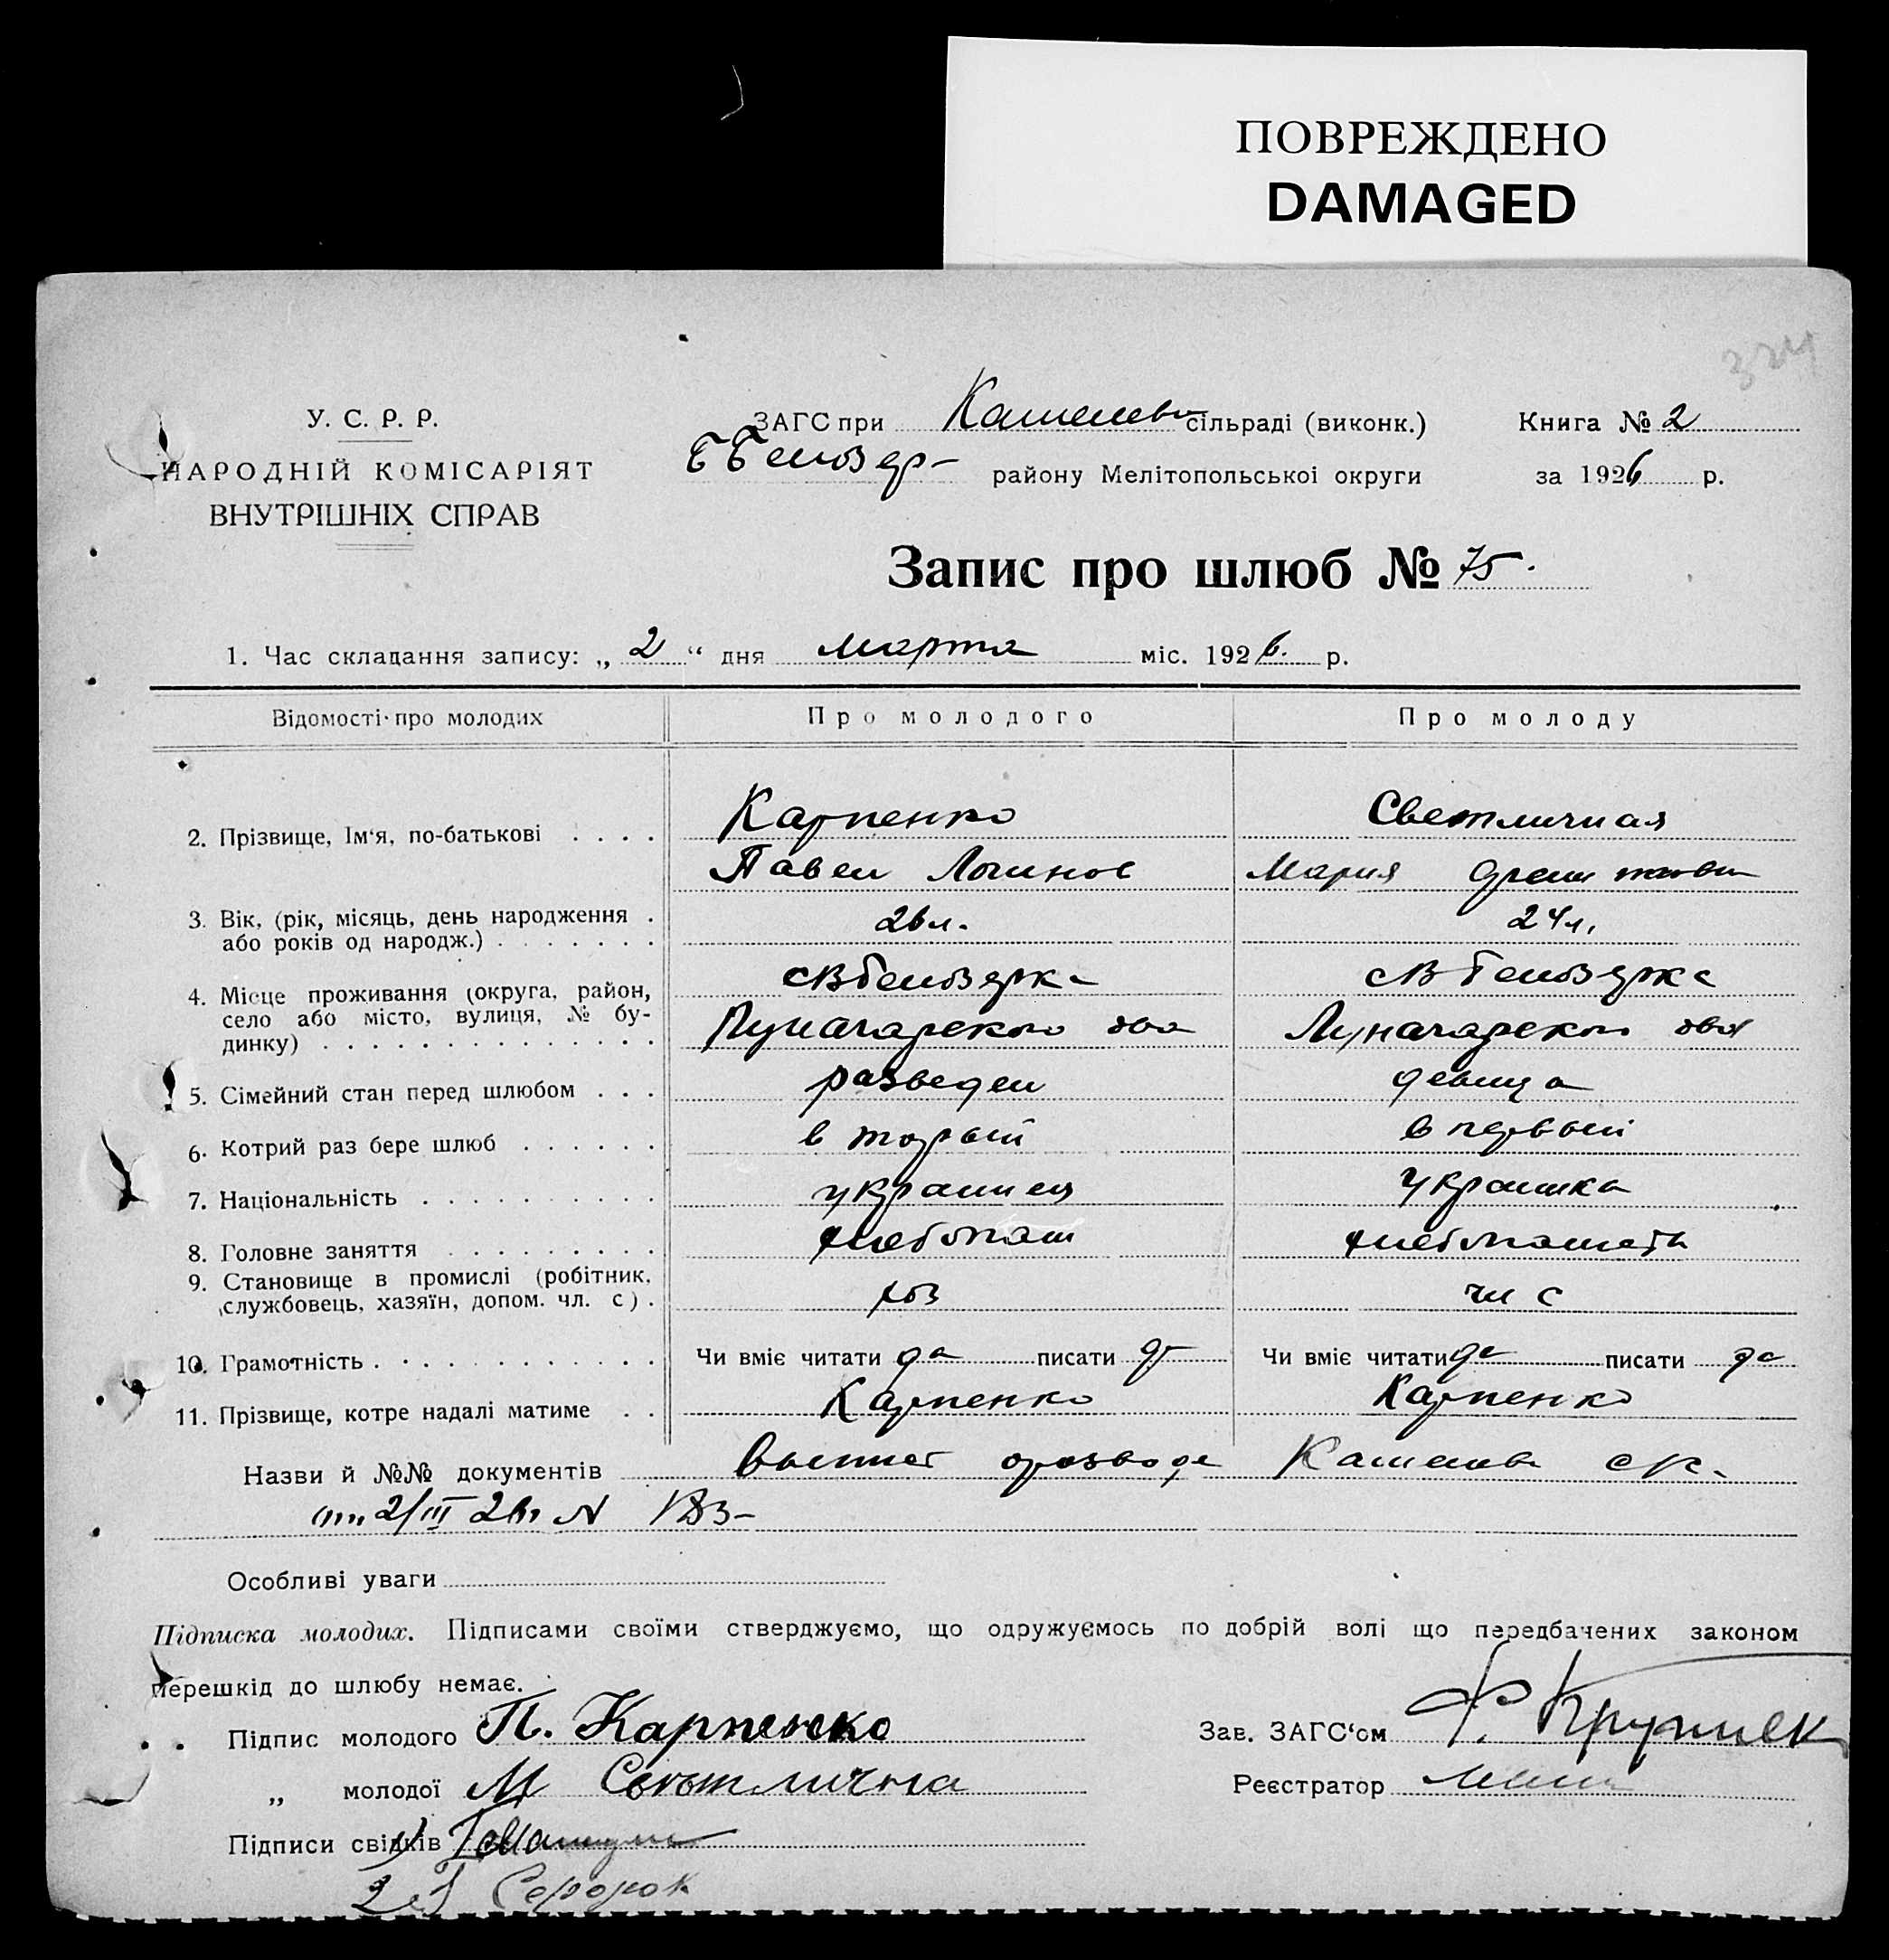 ПОВРЕЖДЕНО
DAMAGED
324
У. С. Р. Р.
НАРОДНІЙ КОМІСАРІЯТ
ВНУТРІШНІХ СПРАВ
ЗАГС при сільраді (виконк.) Книга № 2
району Мелітопольської округи за 1926 р.
Запис про шлюб № 75.
1. Час складання запису: „ 2 “ дня марта міс. 1926. р.
Відомості про молодих Про молодого Про молоду
2. Прізвище, Ім‘я, по-батькові . . . . Карпенко Светличная
Павел Логинов Мария
3. Вік, (рік, місяць, день народження . 26 л. 24 л.
або років од народж.) . . . . . . .
4. Місце проживання (округа, район,
село або місто, вулиця, № бу- Луначарского Луначарского
динку) . . . . . . . . . . . . . .
5. Сімейний стан перед шлюбом . . . разведен девица
6. Котрий раз бере шлюб . . . . . . вторый в первый
7. Національність . . . . . . . . . . украинец украинка
8. Головне заняття . . . . . . . . . хлебопаш
9. Становище в промислі (робітник, хоз чл с
службовець, хазяїн, допом. чл. с) .
10. Грамотність . . . . . . . . . . . . Чи вміє читати да писати да Чи вміє читати да писати да
11. Прізвище, котре надалі матиме . . Карпенко Карпенко
Назви й №№ документів о розводе
2/III 26 г N
Особливі уваги
Підписка молодих. Підписами своїми стверджуємо, що одружуємось по добрій волі що передбачених законом
перешкід до шлюбу немає.
Підпис молодого П. Карпенко Зав. ЗАГС‘ом
„ молодої М Светлична Реєстратор
Підписи свідків 1)
2)